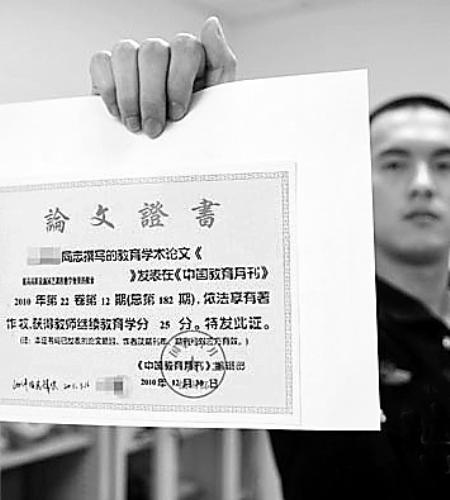 論文證書
同志撰写的教育学术论文《
》发表在《中国教育月刊》
2010 年第 22 卷第 12 期(总第 182 期),依法享有著
作权,获得教师继续教育学分 25 分。特发此证。
(注:本证书与已发表的论文
《中国教育月刊》编辑部
2010 年 12 月 日